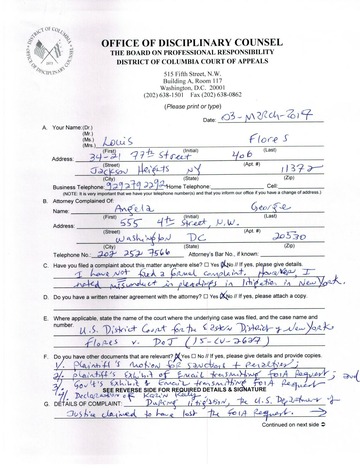 DISTRICT OF COLUMBIA
OFFICE OF DISCIPLINARY COUNSEL
OFFICE OF DISCIPLINARY COUNSEL
THE BOARD ON PROFESSIONAL RESPONSIBILITY
DISTRICT OF COLUMBIA COURT OF APPEALS
515 Fifth Street, N.W.
Building A, Room 117
Washington, D.C. 20001
(202) 638-1501 Fax (202) 638-0862
(Please print or type)
Date: 03-March-2019
A. Your Name:(Dr.)
(Mr.)
(Ms.)
(Mrs.) Louis Flores
(First) (Initial) (Last)
Address: 34-21 77th Street 406
(Street) (Apt. #)
Jackson Heights NY 11372
(City) (State) (Zip)
Business Telephone: 9292792292 Home Telephone: Cell:
(NOTE: It is very important that we have your telephone number(s) and that you inform our office if you have a change of address.)
B. Attorney Complained Of:
Name: Angela George
(First) (Initial) (Last)
Address: 555 4th Street, N.W.
(Street) (Apt. #)
Washington DC 20530
(City) (State) (Zip)
Telephone No.: 202 252 7566 Attorney's Bar No., if known:
C. Have you filed a complaint about this matter anywhere else? Yes No If yes, please give details.
I have not filed a formal complaint. However, I
noted misconduct in pleadings in litigation in New York.
D. Do you have a written retainer agreement with the attorney? Yes No If yes, please attach a copy.
E. Where applicable, state the name of the court where the underlying case was filed, and the case name and
number.
U.S. District Court for the Eastern District of New York
Flores v. DoJ (15-CV-2627)
F. Do you have other documents that are relevant? Yes No If yes, please give details and provide copies.
1/. Plaintiff's motion for sanctions + penalties;
2/. Plaintiff's Exhibit of Email transmitting FOIA Request;
3/. Gov't's Exhibit of Email transmitting FOIA Request; and
4/. Declaration of
SEE REVERSE SIDE FOR REQUIRED DETAILS & SIGNATURE
G. DETAILS OF COMPLAINT: During litigation, the U.S. Department of
Justice claimed to have lost the FOIA Request. →
Continued on next side